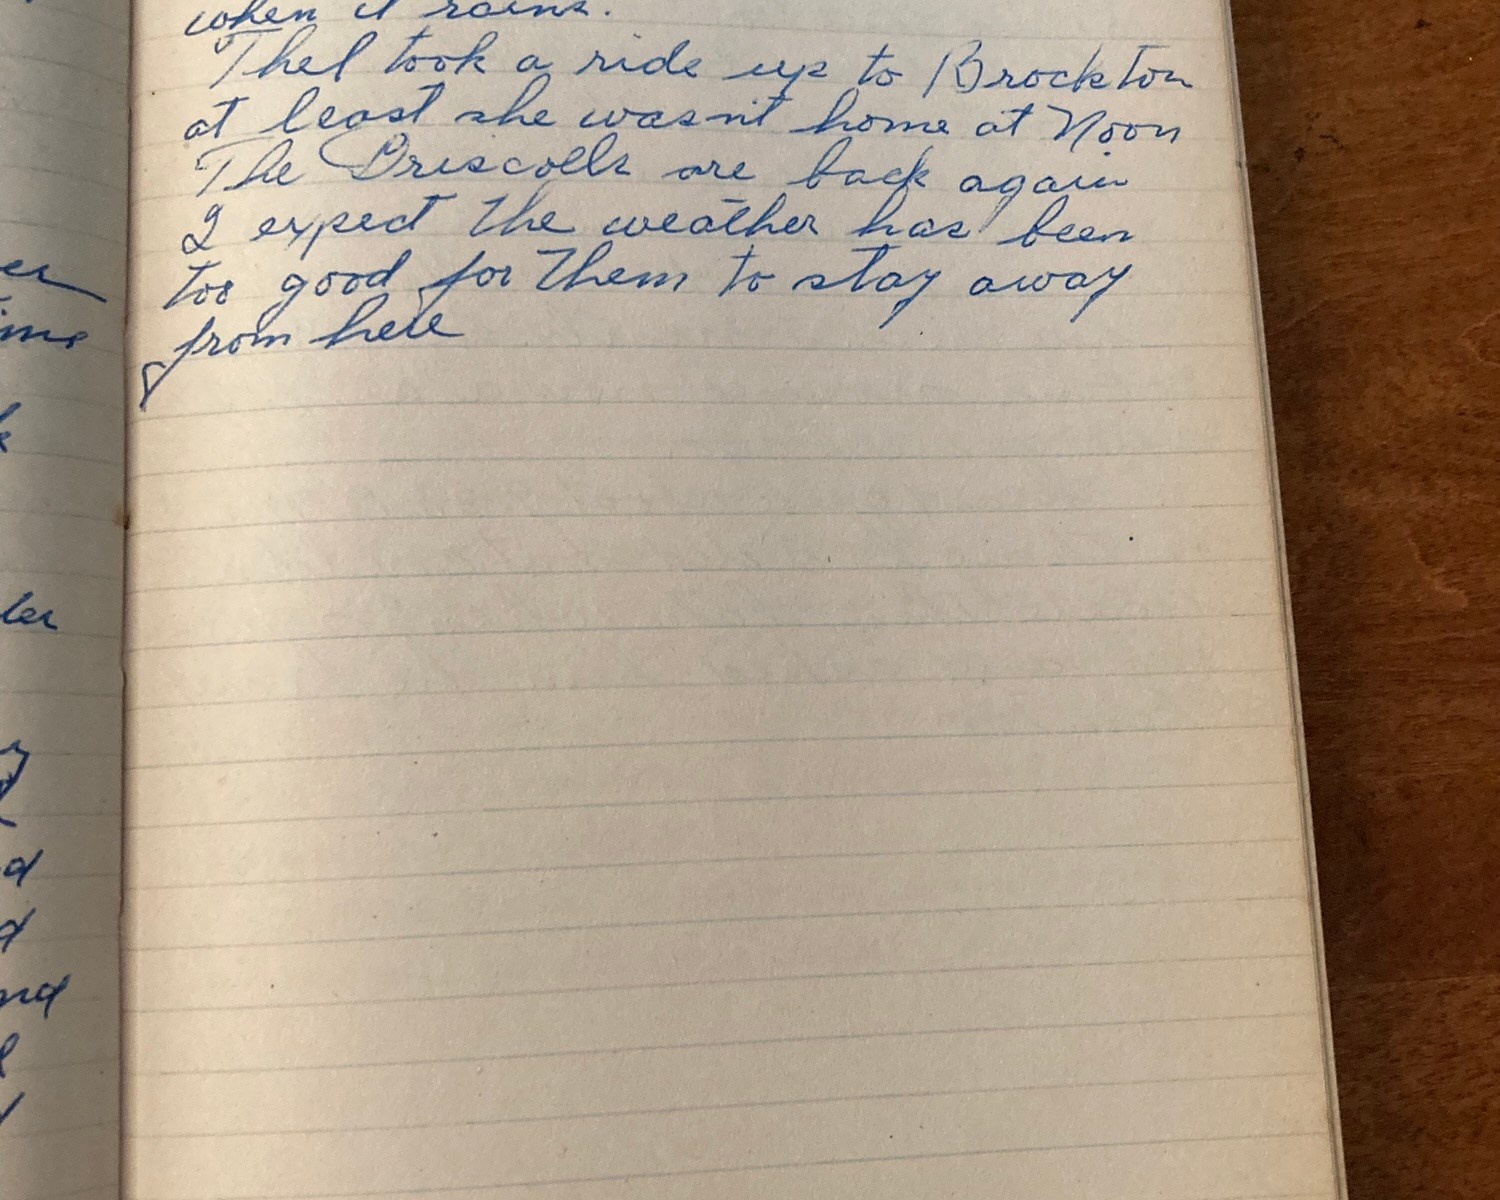 when it rains.
Thel took a ride up to Brockton
at least she wasn't home at Noon
The Driscolls are back again
I expect the weather has been
too good for them to stay away
from here